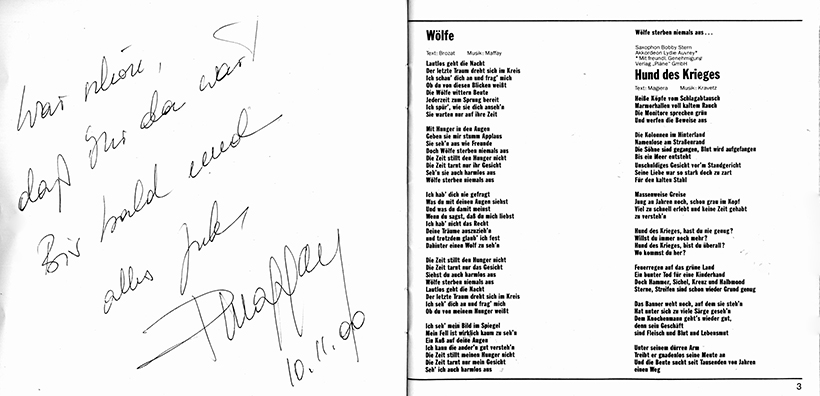 War schön,
daß Ihr da wart
Bis bald und
alles Gute,
PMaffay
10.11.90
Wölfe
Text: Brozat Musik: Maffay
Lautlos geht die Nacht
Der letzte Traum dreht sich im Kreis
Ich schau' dich an und frag' mich
Ob du von diesen Blicken weißt
Die Wölfe wittern Beute
Jederzeit zum Sprung bereit
Ich spür', wie sie dich anseh'n
Sie warten nur auf ihre Zeit
Mit Hunger in den Augen
Geben sie mir stumm Applaus
Sie seh'n aus wie Freunde
Doch Wölfe sterben niemals aus
Die Zeit stillt den Hunger nicht
Die Zeit tarnt nur ihr Gesicht
Seh'n sie auch harmlos aus
Wölfe sterben niemals aus
Ich hab' dich nie gefragt
Was du mit deinen Augen siehst
Und was du damit meinst
Wenn du sagst, daß du mich liebst
Ich hab' nicht das Recht
Deine Träume auszuzieh'n
und trotzdem glaub' ich fest
Dahinter einen Wolf zu seh'n
Die Zeit stillt den Hunger nicht
Die Zeit tarnt nur das Gesicht
Siehst du auch harmlos aus
Wölfe sterben niemals aus
Lautlos geht die Nacht
Der letzte Traum dreht sich im Kreis
Ich seh' dich an und frag' mich
Ob du von meinem Hunger weißt
Ich seh' mein Bild im Spiegel
Mein Fell ist wirklich kaum zu seh'n
Ein Kuß auf deine Augen
Ich kann die ander'n gut versteh'n
Die Zeit stillt meinen Hunger nicht
Die Zeit tarnt nur mein Gesicht
Seh' ich auch harmlos aus
Wölfe sterben niemals aus ...
Saxophon Bobby Stern
Akkordeon Lydie Auvray*
* Mit freundl. Genehmigung
Verlag „Pläne" GmbH
Hund des Krieges
Text: Magiera Musik: Kravetz
Heiße Köpfe vom Schlagabtausch
Marmorhallen voll kaltem Rauch
Die Monitore sprechen grün
Und werfen die Beweise aus
Die Kolonnen im Hinterland
Namenlose am Straßenrand
Die Söhne sind gegangen, Blut wird aufgefangen
Bis ein Meer entsteht
Unschuldiges Gesicht vor'm Standgericht
Seine Liebe war so stark doch zu zart
Für den kalten Stahl
Massenweise Greise
Jung an Jahren noch, schon grau im Kopf
Viel zu schnell erlebt und keine Zeit gehabt
zu versteh'n
Hund des Krieges, hast du nie genug?
Willst du immer noch mehr?
Hund des Krieges, bist du überall?
Wo kommst du her?
Feuerregen auf das grüne Land
Ein bunter Tod für eine Kinderhand
Doch Hammer, Sichel, Kreuz und Halbmond
Sterne, Streifen sind schon wieder Grund genug
Das Banner weht noch, auf dem sie steh'n
Hat unter sich zu viele Särge geseh'n
Dem Knochenmann geht's wieder gut,
denn sein Geschäft
sind Fleisch und Blut und Lebensmut
Unter seinem dürren Arm
Treibt er gnadenlos seine Meute an
Und die Beute sucht seit Tausenden von Jahren
einen Weg
3